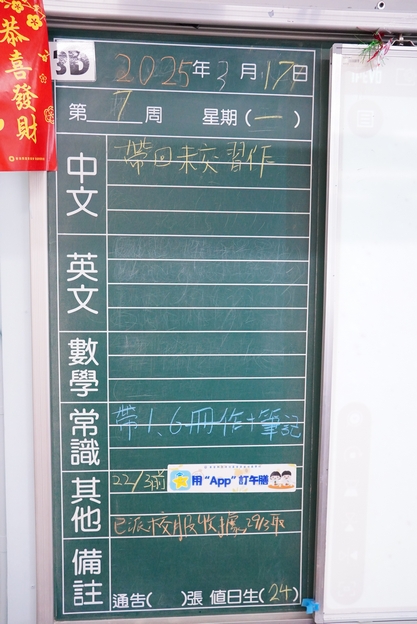 恭喜發財
3D
2025年3月17日
第7周 星期(一)
中文 帶回未交習作
英文
數學
常識 帶1、6冊作+筆記
其他 22/3前 用“App”訂午膳
已派校服收據,29/3取
備註
通告( )張 值日生(24)